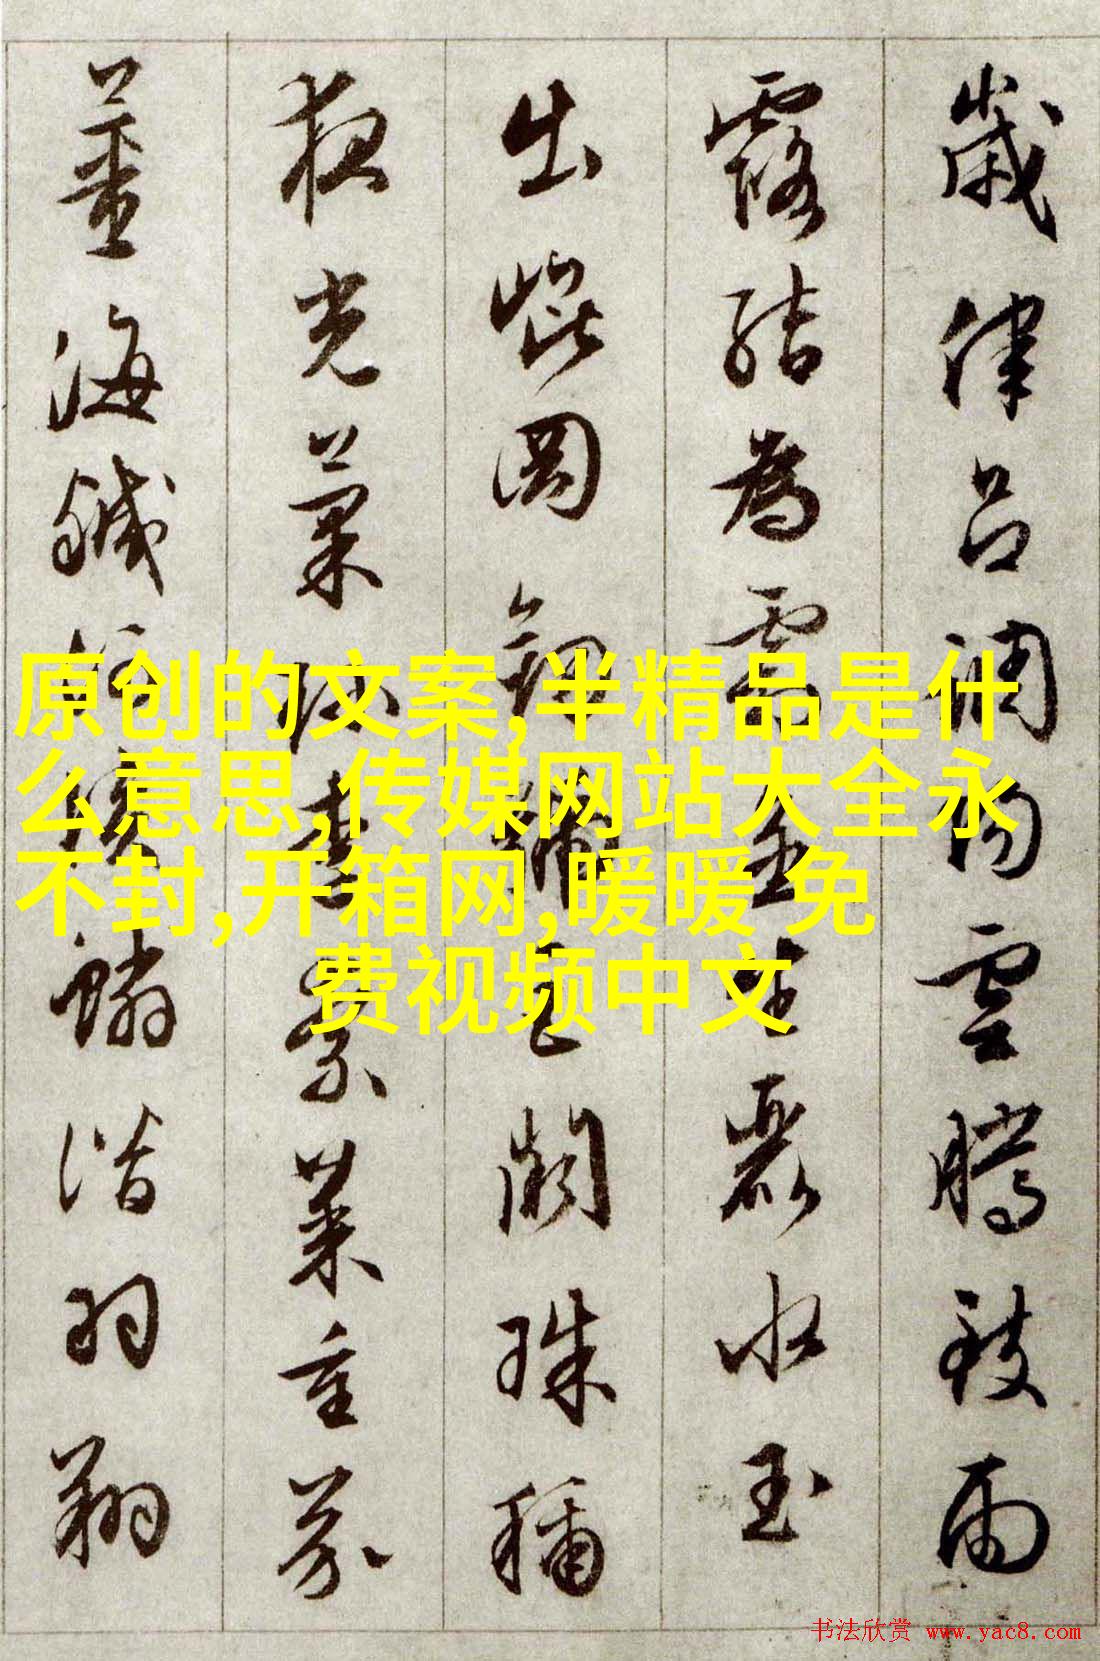 歲律呂調陽雲騰致雨
露結為霜金生麗水玉
出崐岡劍號巨闕珠稱
夜光菓珍李柰菜重芥
薑海鹹河淡鱗潛羽翔
原创的文案,半精品是什
么意思,传媒网站大全永
不封,开箱网,暖暖 免
费视频中文
书法欣赏 www.yac8.com